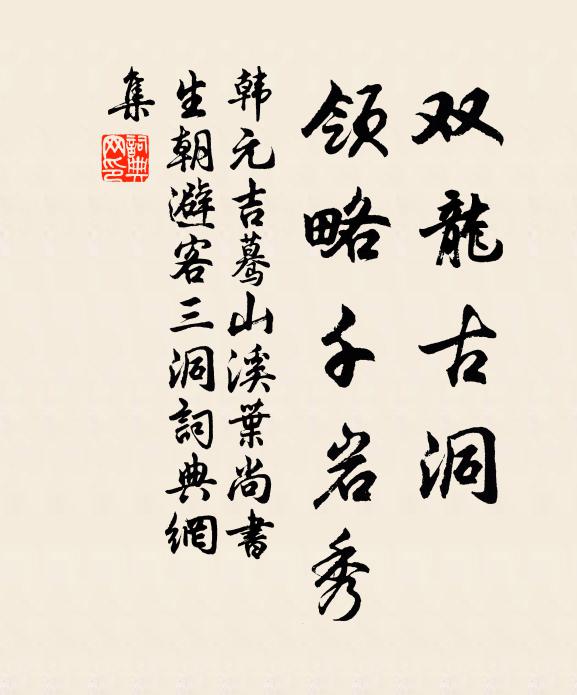 双龍古洞
领略千岩秀
韩元吉蓦山溪葉尚書
生朝避客三洞詞典網
集
詞典
网印